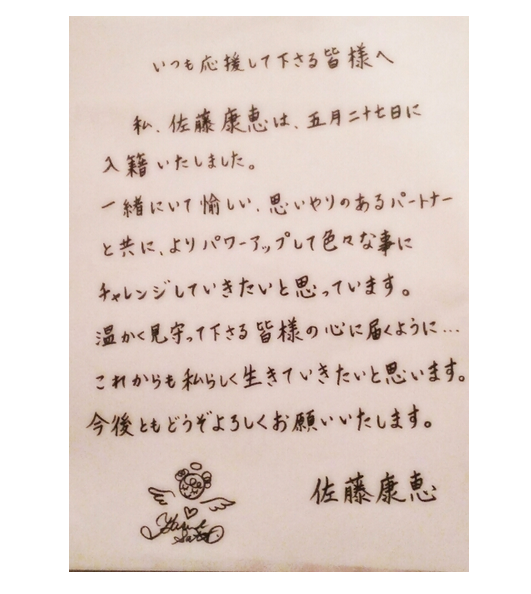 いつも応援して下さる皆様へ
私、佐藤康恵は、五月二十七日に
入籍いたしました。
一緒にいて愉しい、思いやりのあるパートナー
と共に、よりパワーアップして色々な事に
チャレンジしていきたいと思っています。
温かく見守って下さる皆様の心に届くように…
これからも私らしく生きていきたいと思います。
今後ともどうぞよろしくお願いいたします。
佐藤康恵